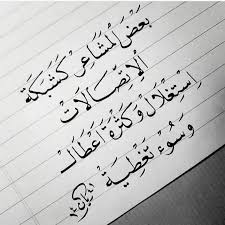 بَعْض اَلْمشَاعِر كَشَبَكَة
اَلْاِتِّصَالَات
اِسْتِغْلَالْ وَكَثْرَة اَعْطَالْ
وَسُوْء تَغْطِيَة